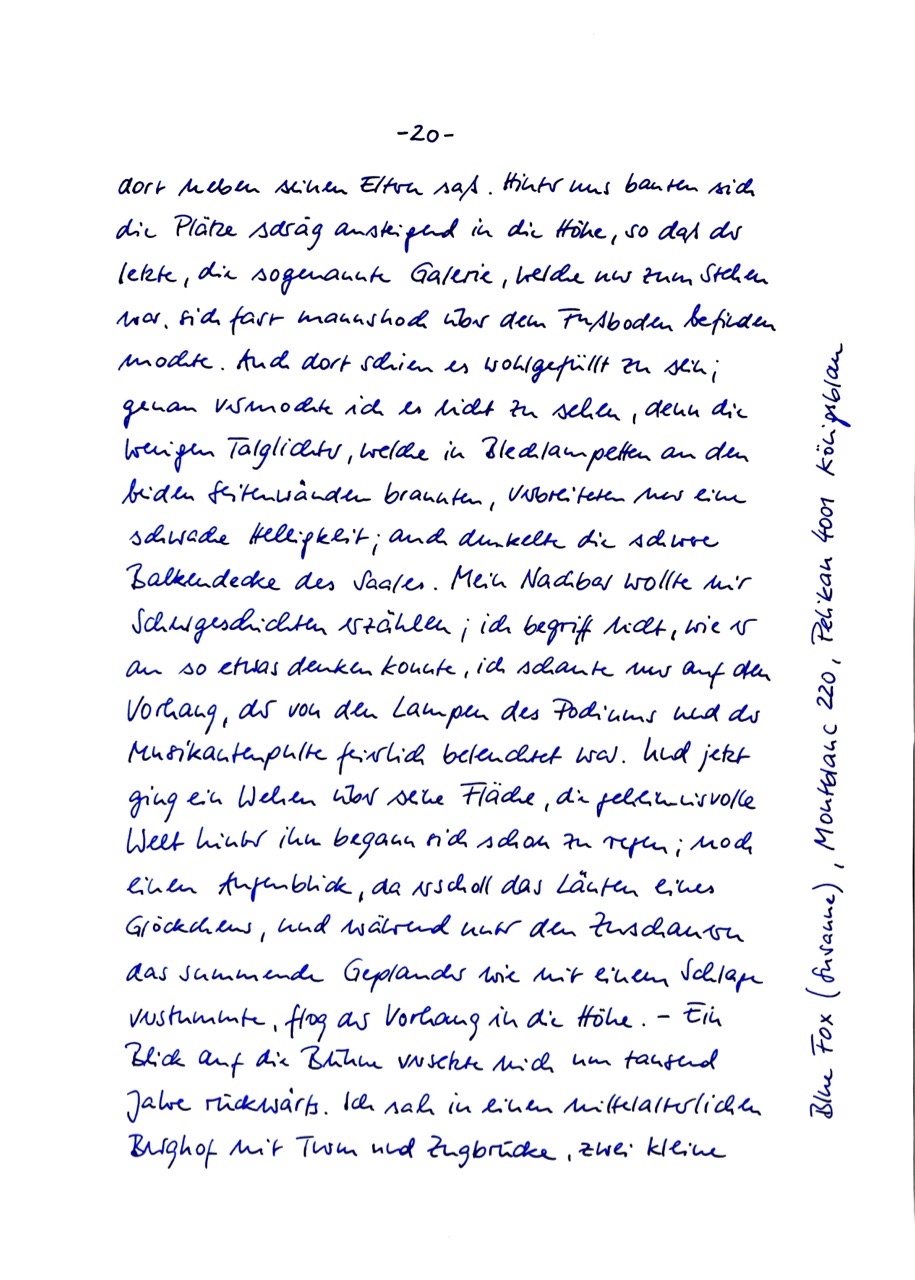 -20-
dort neben seinen Eltern saß. Hinter uns bauten sich
die Plätze schräg ansteigend in die Höhe, so daß der
letzte, die sogenannte Galerie, welche nur zum Stehen
war, sich fast mannshoch über dem Fußboden befinden
mochte. Auch dort schien es wohlgefüllt zu sein;
genau vermochte ich es nicht zu sehen, denn die
wenigen Talglichter, welche in Blechlampetten an den
beiden Seitenwänden brannten, verbreiteten nur eine
schwache Helligkeit; auch dunkelte die schwere
Balkendecke des Saales. Mein Nachbar wollte mir
Schulgeschichten erzählen; ich begriff nicht, wie er
an so etwas denken konnte, ich schaute nur auf den
Vorhang, der von den Lampen des Podiums und der
Musikantenpulte feierlich beleuchtet war. Und jetzt
ging ein Wehen über seine Fläche, die geheimnisvolle
Welt hinter ihm begann sich schon zu regen; noch
einen Augenblick, da erscholl das Läuten eines
Glöckchens, und während unter den Zuschauern
das summende Geplauder wie mit einem Schlage
verstummte, flog der Vorhang in die Höhe. - Ein
Blick auf die Bühne versetzte mich um tausend
Jahre rückwärts. Ich sah in einen mittelalterlichen
Burghof mit Turm und Zugbrücke, zwei kleine
Blue Fox (Susanne), Montblanc 220, Pelikan 4001 Königsblau